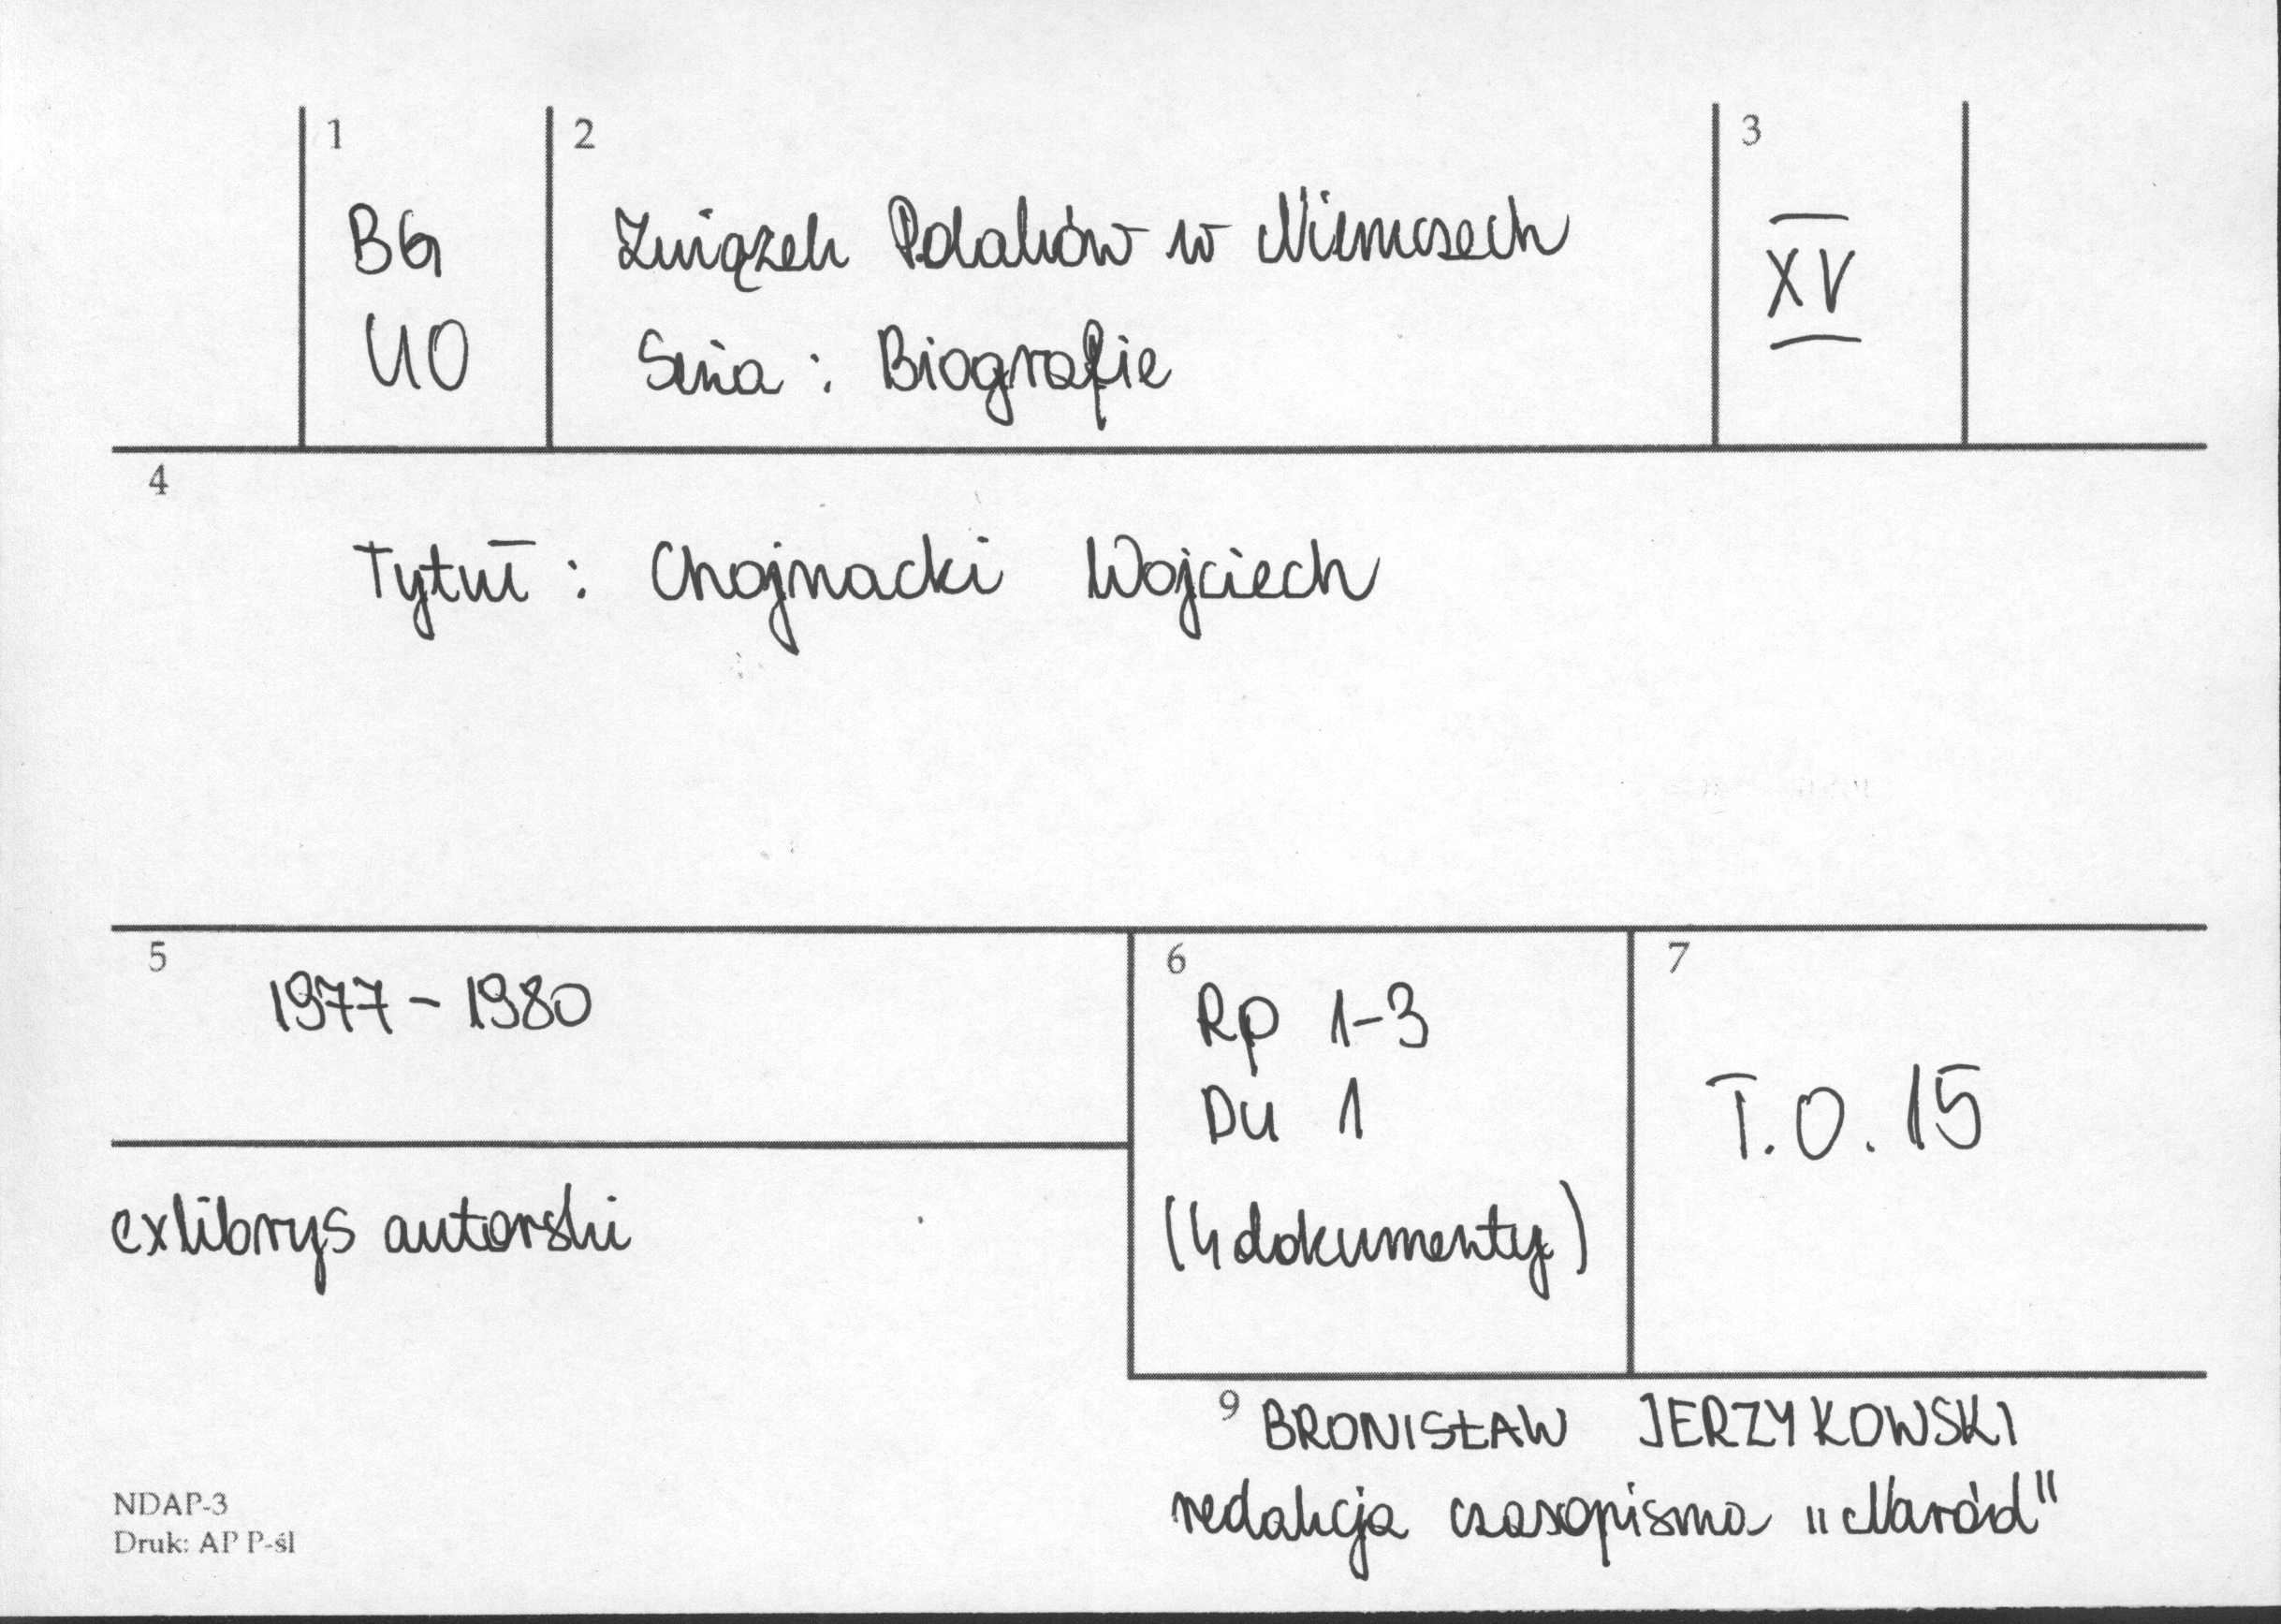 1
2
3
BG
UO
Związek Polaków w Niemczech
Seria : Biografie
XV
4
Tytuł : Chojnacki Wojciech
5
1977 - 1980
6
Rp 1-3
Du 1
(4 dokumenty)
7
T.O. 15
exlibrys autorski
9 BRONISŁAW JERZYKOWSKI
redakcja czasopisma "Naród"
NDAP-3
Druk: AP P-śl